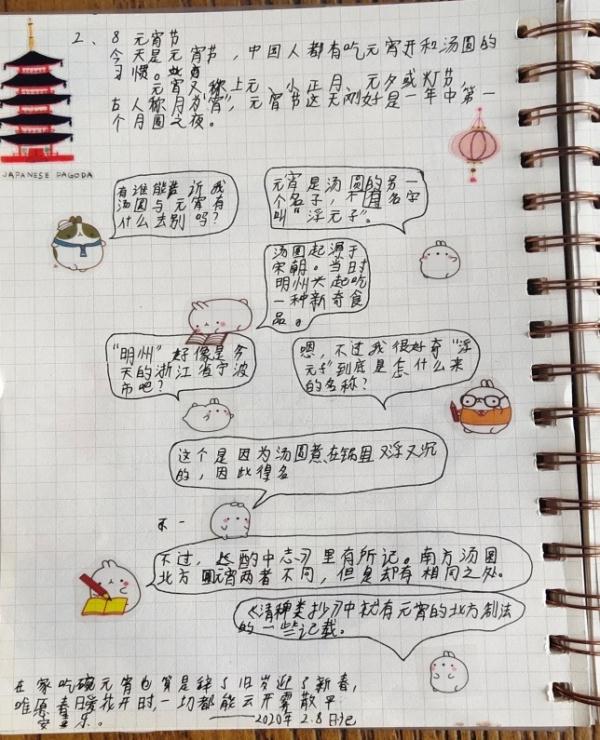 2、8 元宵节
今天是元宵节，中国人都有吃元宵和汤圆的
习惯。
元宵又称上元、小正月、元夕或灯节，
古人称月为"宵"，元宵节这天刚好是一年中第一
个月圆之夜。
JAPANESE PAGODA
有谁能告诉我
汤圆与元宵有
什么去别吗？
元宵是汤圆的另一
个名子，不有名字
叫"浮元子"。
汤圆起源于
宋朝。当时
明州兴起吃
一种新奇食
品。
"明州"好像是今
天的浙江省宁波
市吧？
嗯，不过我很好奇"浮
元子"到底是怎什么来
的名称？
这个是因为汤圆煮在锅里又浮又沉
的，因此得名
不一
不过，《酌中志》里有所记。南方汤圆
北方元宵两者不同，但是却有相同之处。
《清稗类抄》中就有元宵的北方制法
的一些记载。
在家吃碗元宵也算是辞了旧岁迎了新春，
唯愿春日暖花开时，一切都能云开雾散平
安喜乐。 ——2020年2.8日记